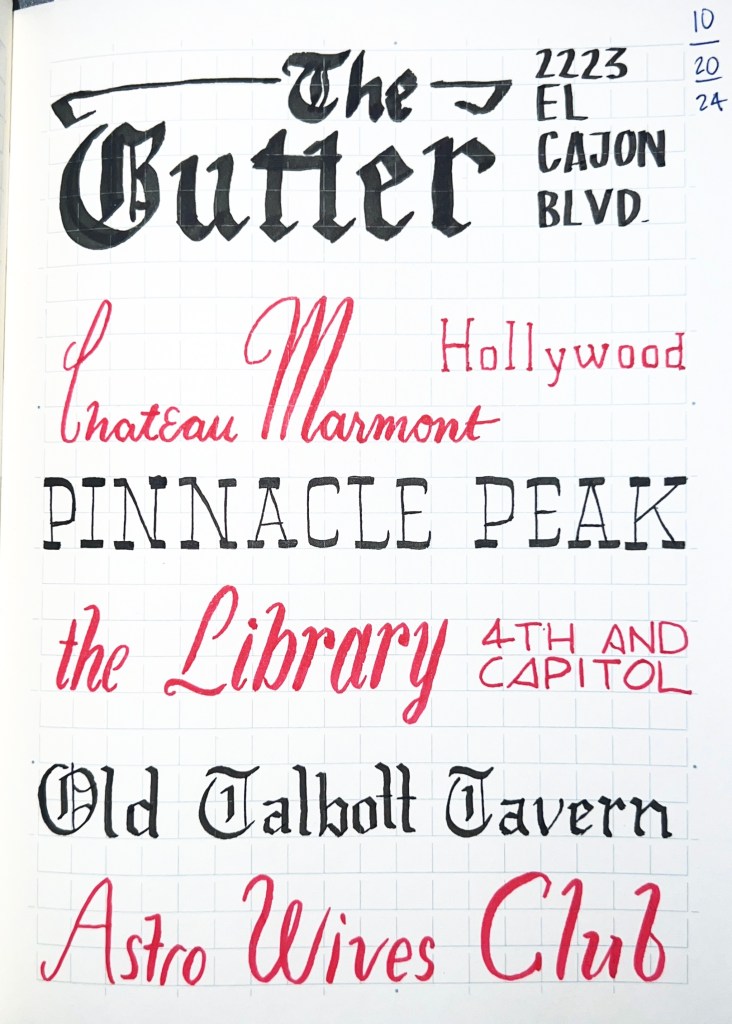 10
20
24
The
Gutter
2223
EL
CAJON
BLVD.
Chateau Marmont
Hollywood
PINNACLE PEAK
the Library
4TH AND
CAPITOL
Old Talbott Tavern
Astro Wives Club